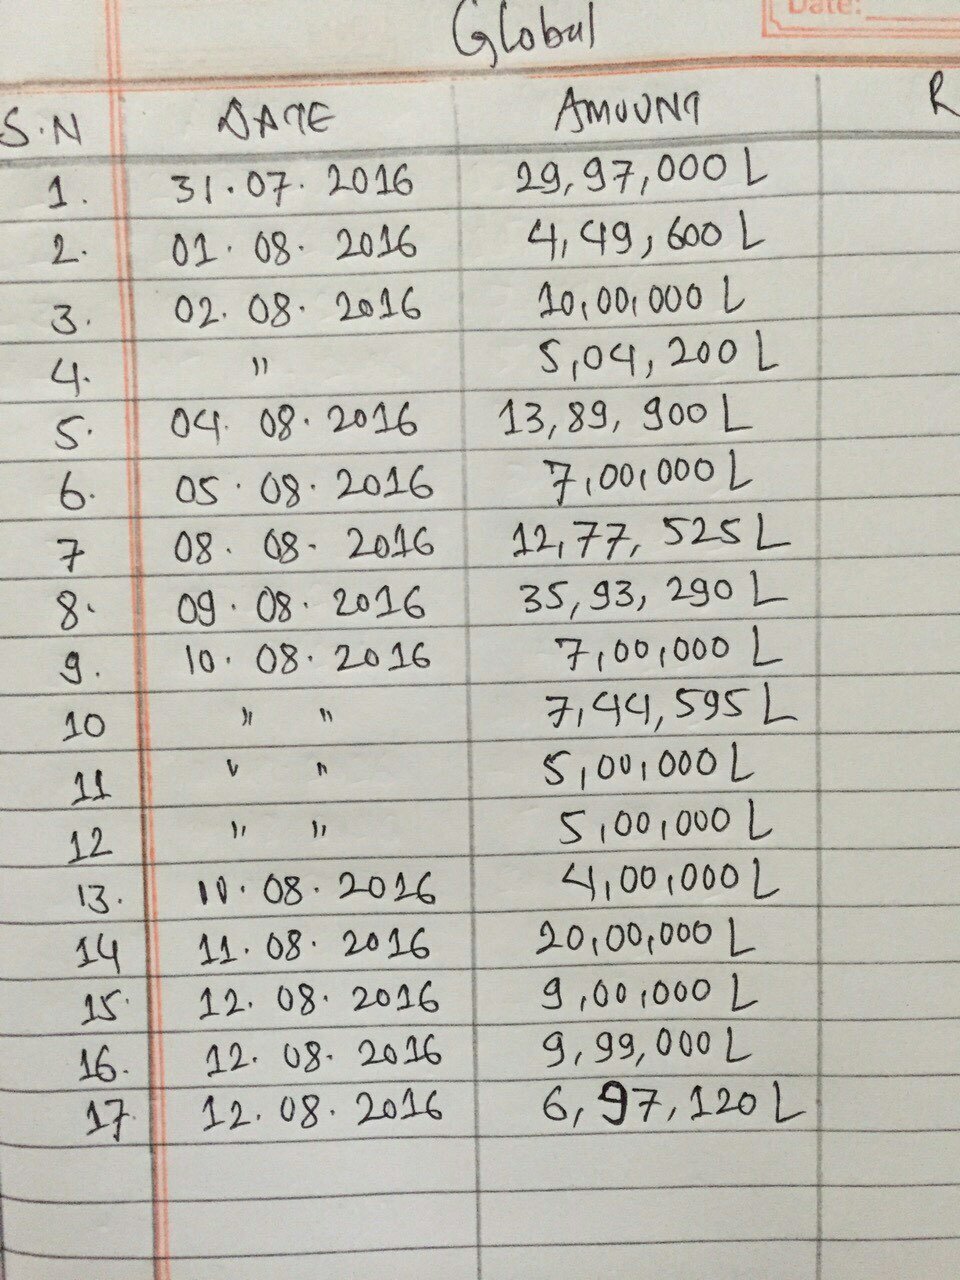 Date:
Global
S.N DATE AMOUNT R
1. 31.07.2016 29,97,000 L
2. 01.08.2016 4,49,600 L
3. 02.08.2016 10,00,000 L
4. " 5,04,200 L
5. 04.08.2016 13,89,900 L
6. 05.08.2016 7,00,000 L
7 08.08.2016 12,77,525 L
8. 09.08.2016 35,93,290 L
9. 10.08.2016 7,00,000 L
10 " " 7,44,595 L
11 " " 5,00,000 L
12 " " 5,00,000 L
13. 10.08.2016 4,00,000 L
14 11.08.2016 20,00,000 L
15. 12.08.2016 9,00,000 L
16. 12.08.2016 9,99,000 L
17. 12.08.2016 6,97,120 L